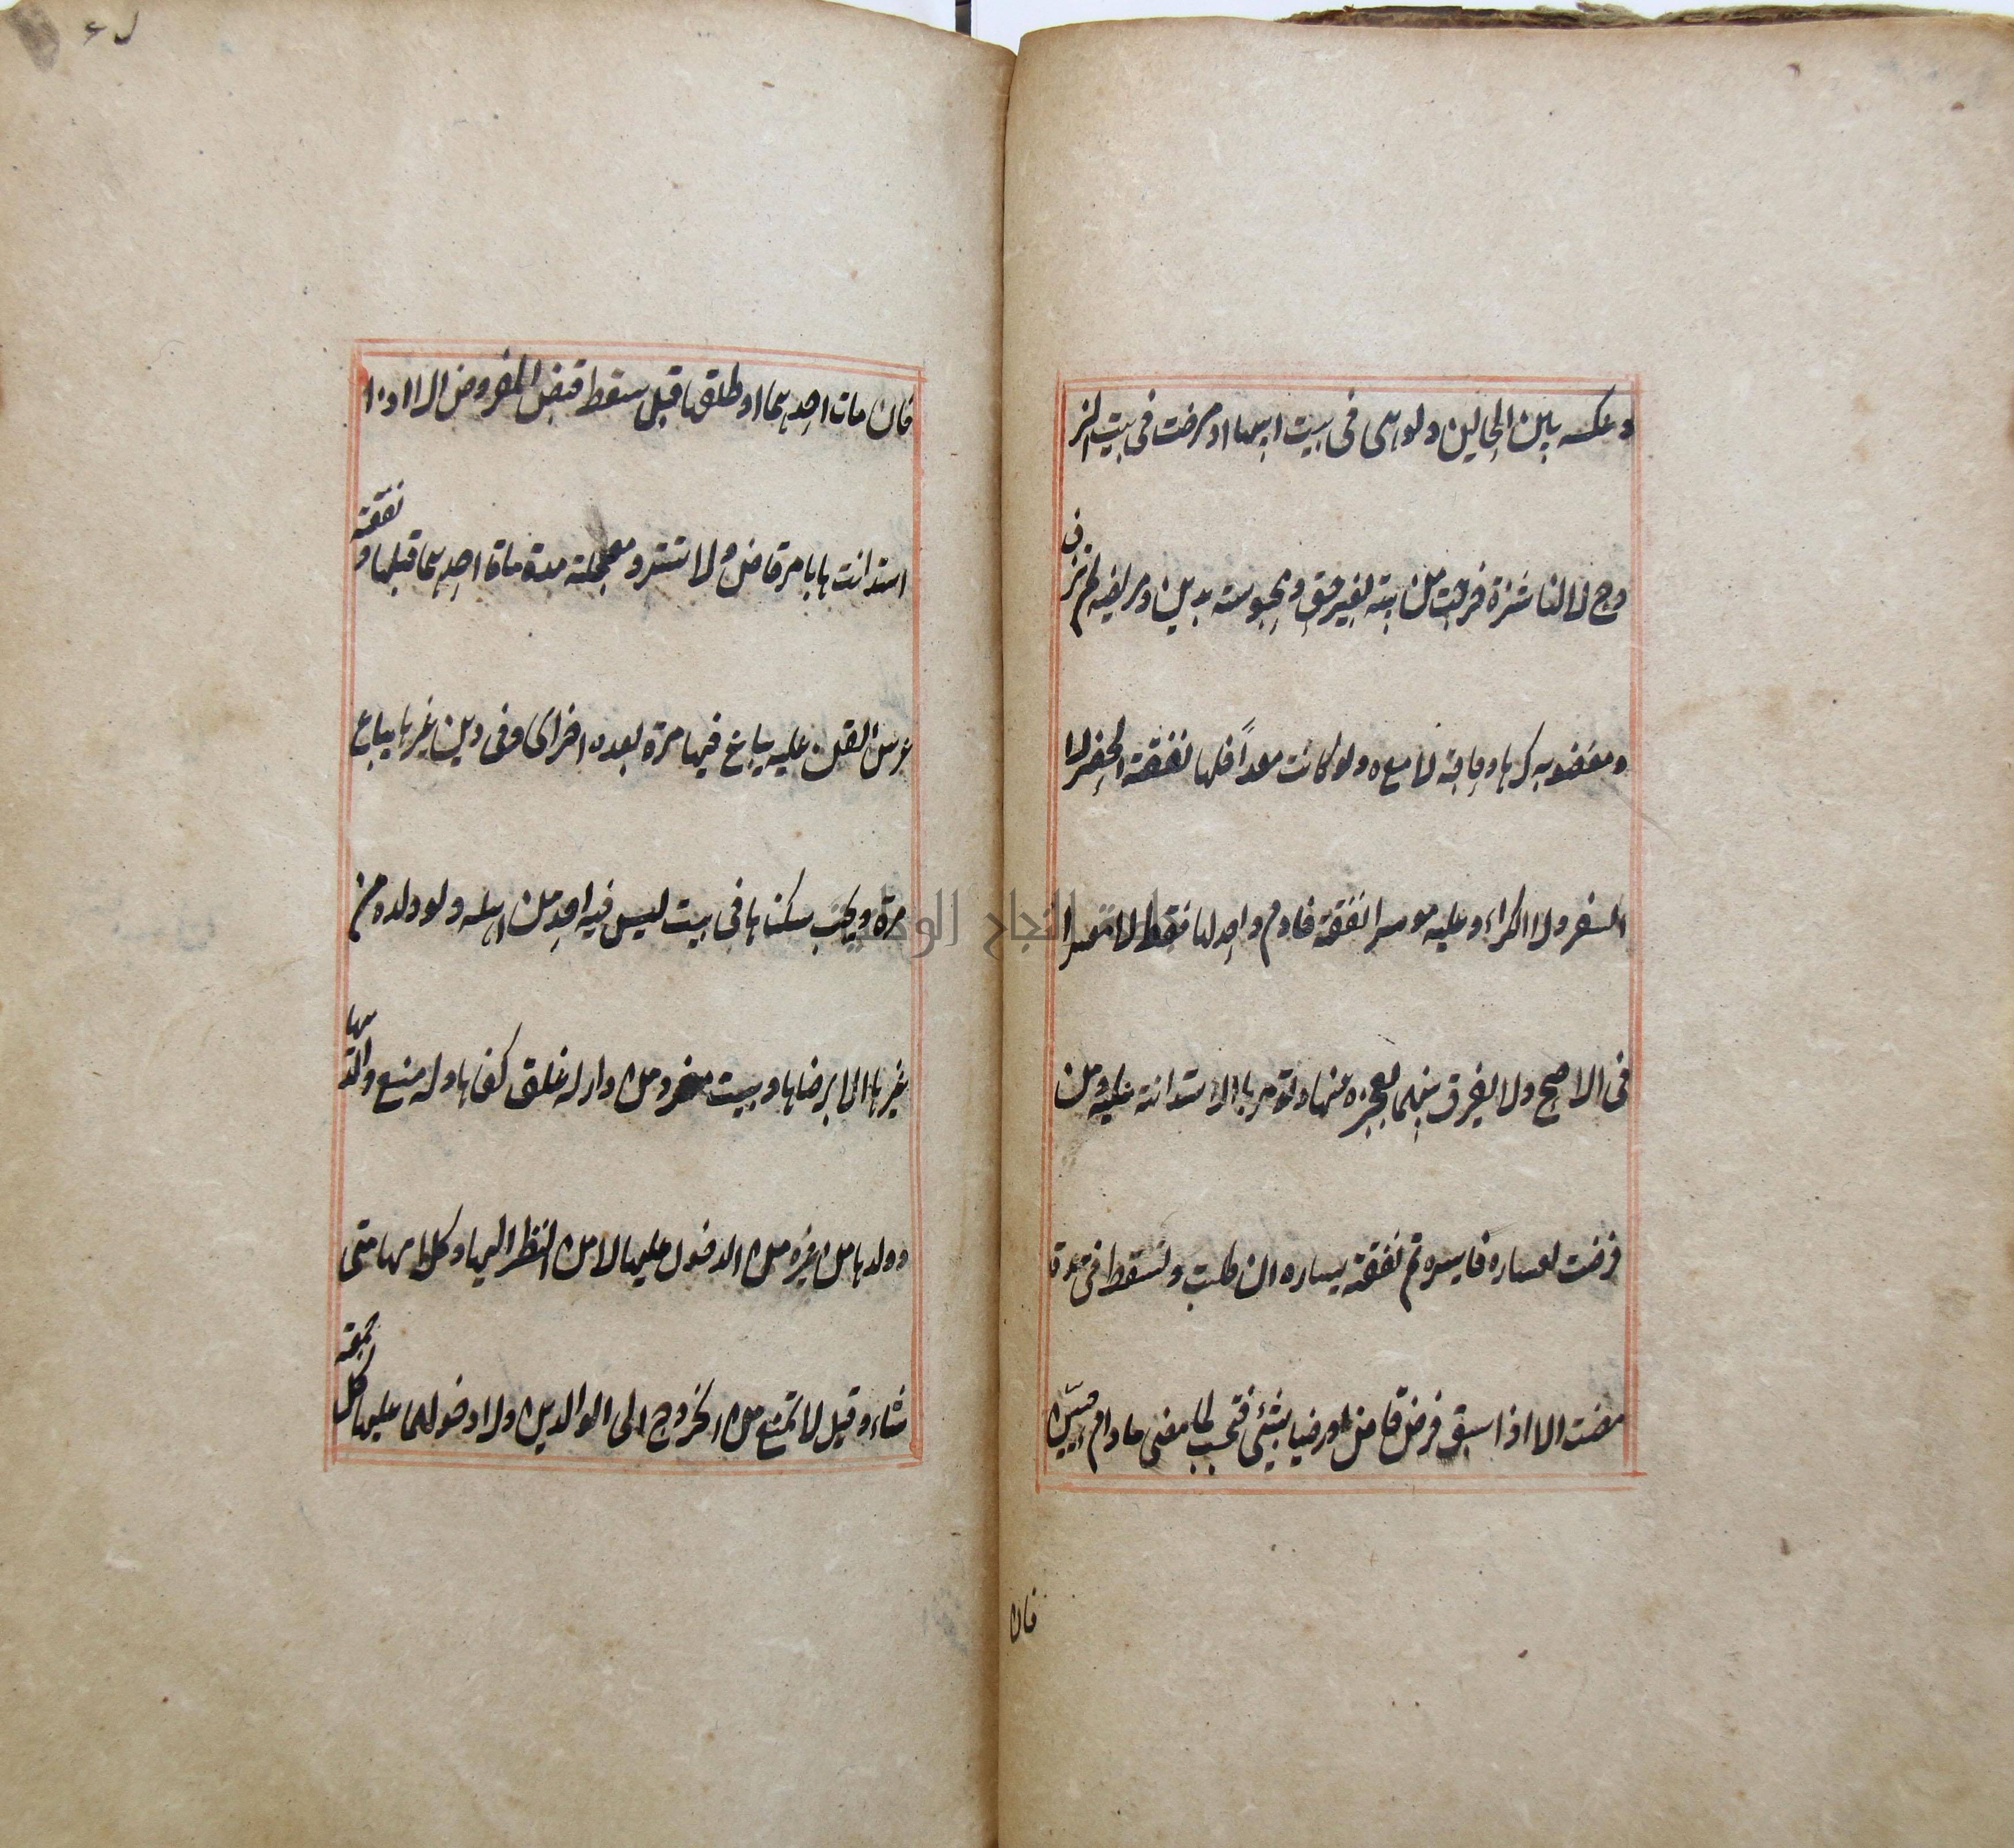 وعكسه بين الحالين ولو هى فى بيت ابيها او مرضت فى بيت الز
وج لا لناشزة خرجت من بيته بغير حق ومحبوسة بدين ومريضه لم تزف
ومغضوبه كرها وحاجة لا معه ولو كانت معه فلها نفقة الحضر لا
السفر ولا الكراء وعليه موسرا نفقة خادم واحد لها فقط لا معسرا
فى الاصح ولا يفرق بينهما بعجزه عنها وتؤمر بالاستدانة عليه ومن
فرضت لعساره فايسر تم نفقة يساره ان طلبت وتسقط فى مدة
مضت الا اذا سبق فرض قاض او رضيا بشئ فتجب لما مضى ما داما حيين
فان
فان مات احدهما او طلقها قبل سقط قبض المفروض الا اذا
استدانت بامر قاض ولا تسترد معجلة مدة مات احدهما قبلها ونفقة
عرس القن عليه يباع فيها مرة بعد اخرى وفى دين غيرها يباع
مرة ويجب سكناها فى بيت ليس فيه احد من اهله ولو ولده من
غيرها الا برضاها وبيت مفرد من دار له غلق كفاها وله منع والديها
وولدها من غيره من الدخول عليها لا من النظر اليها وكلامها متى
شاء وقيل لا تمنع من الخروج الى الوالدين ولا دخولهما عليها كل جمعة
النجاح الوطنية